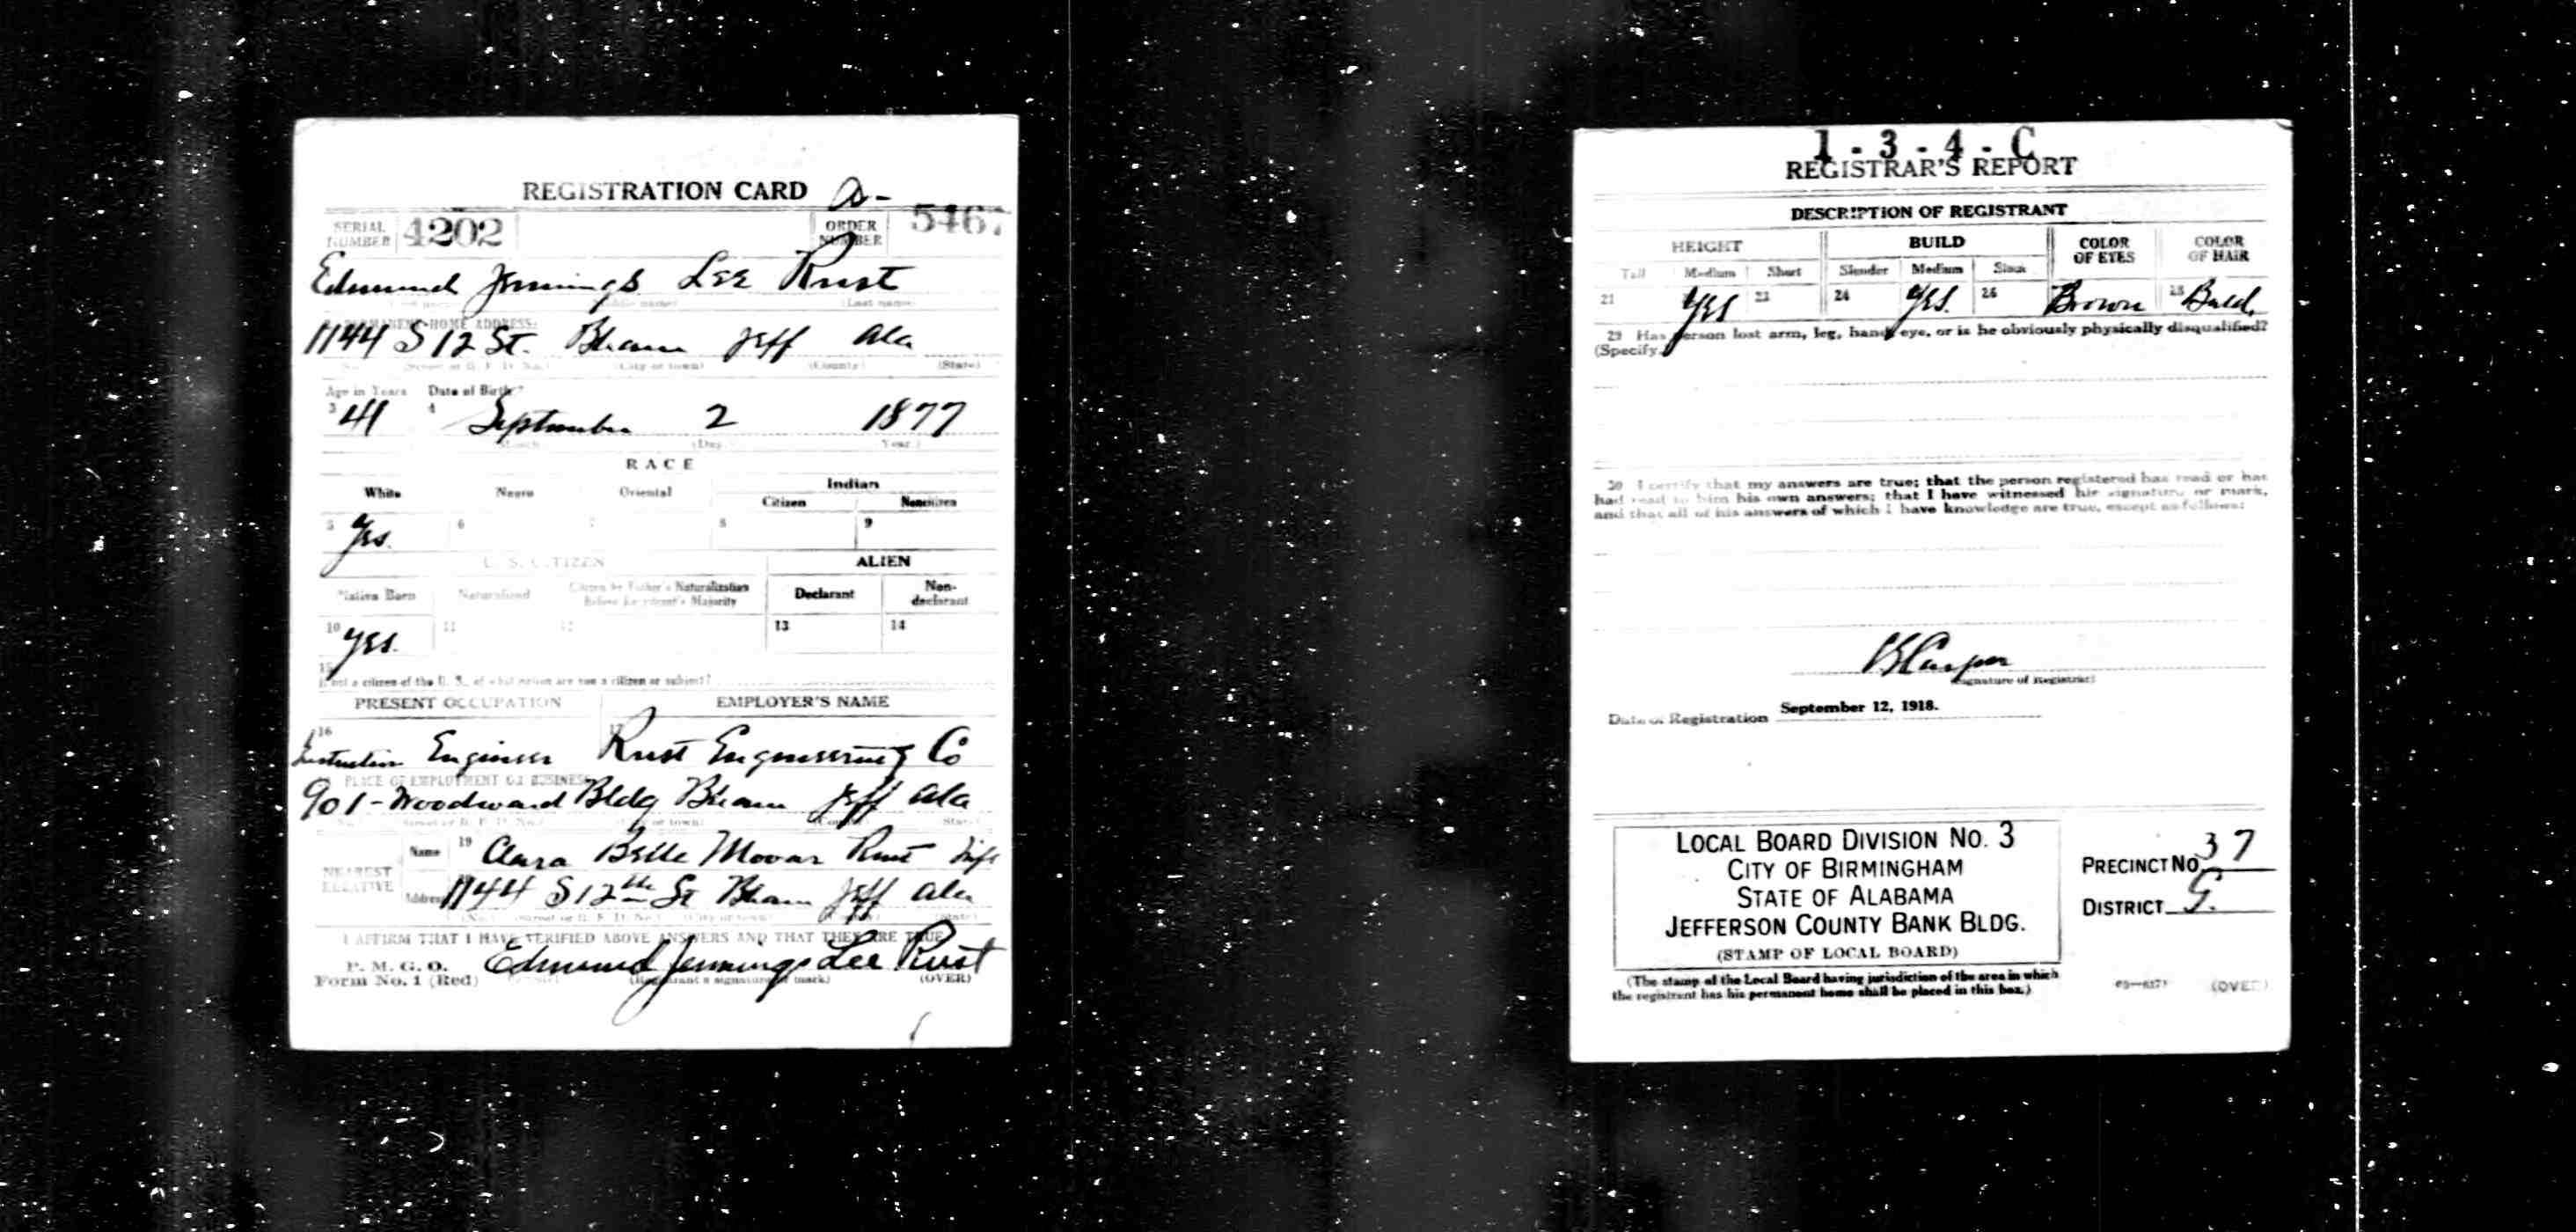 REGISTRATION CARD a-
SERIAL NUMBER 4202 ORDER NUMBER 5467
Edmund Jennings Lee Rust
(Middle name) (Last name)
PERMANENT HOME ADDRESS:
1144 S 12 St. Bham Jeff Ala
(No.) (Street or R. F. D. No.) (City or town) (County) (State)
Age in Years Date of Birth
3 41 4 September 2 1877
(Month) (Day) (Year)
RACE
White Negro Oriental Indian
Citizen Noncitizen
5 Yes. 6 7 8 9
U. S. CITIZEN ALIEN
Native Born Naturalized Citizen by Father's Naturalization Before Registrant's Majority Declarant Non-declarant
10 Yes. 11 12 13 14
15
If not a citizen of the U. S., of what nation are you a citizen or subject?
PRESENT OCCUPATION EMPLOYER'S NAME
16 Engineer 17 Rust Engineering Co
PLACE OF EMPLOYMENT OR BUSINESS
901 - Woodward Bldg Bham Jeff Ala
(No.) (Street or R. F. D. No.) (City or town) (County) (State)
NEAREST RELATIVE Name 19 Clara Belle Rust Wife
Address 1144 S 12th St Bham Jeff Ala
(No.) (Street or R. F. D. No.) (City or town) (County) (State)
I AFFIRM THAT I HAVE VERIFIED ABOVE ANSWERS AND THAT THEY ARE TRUE
P. M. G. O.
Form No. 1 (Red) Edmund Jennings Lee Rust
(Registrant's signature or mark) (OVER)
1 - 3 - 4 - C
REGISTRAR'S REPORT
DESCRIPTION OF REGISTRANT
HEIGHT BUILD COLOR OF EYES COLOR OF HAIR
Tall Medium Short Slender Medium Stout
21 Yes 23 24 Yes. 26 Brown 28 Bald.
29 Has person lost arm, leg, hand, eye, or is he obviously physically disqualified?
(Specify.)
30 I certify that my answers are true; that the person registered has read or has
had read to him his own answers; that I have witnessed his signature or mark,
and that all of his answers of which I have knowledge are true, except as follows:
(Signature of Registrar)
Date of Registration September 12, 1918.
LOCAL BOARD DIVISION NO. 3
CITY OF BIRMINGHAM
STATE OF ALABAMA
JEFFERSON COUNTY BANK BLDG.
(STAMP OF LOCAL BOARD)
PRECINCT NO. 37
DISTRICT G.
(The stamp of the Local Board having jurisdiction of the area in which
the registrant has his permanent home shall be placed in this box.)
(OVER)